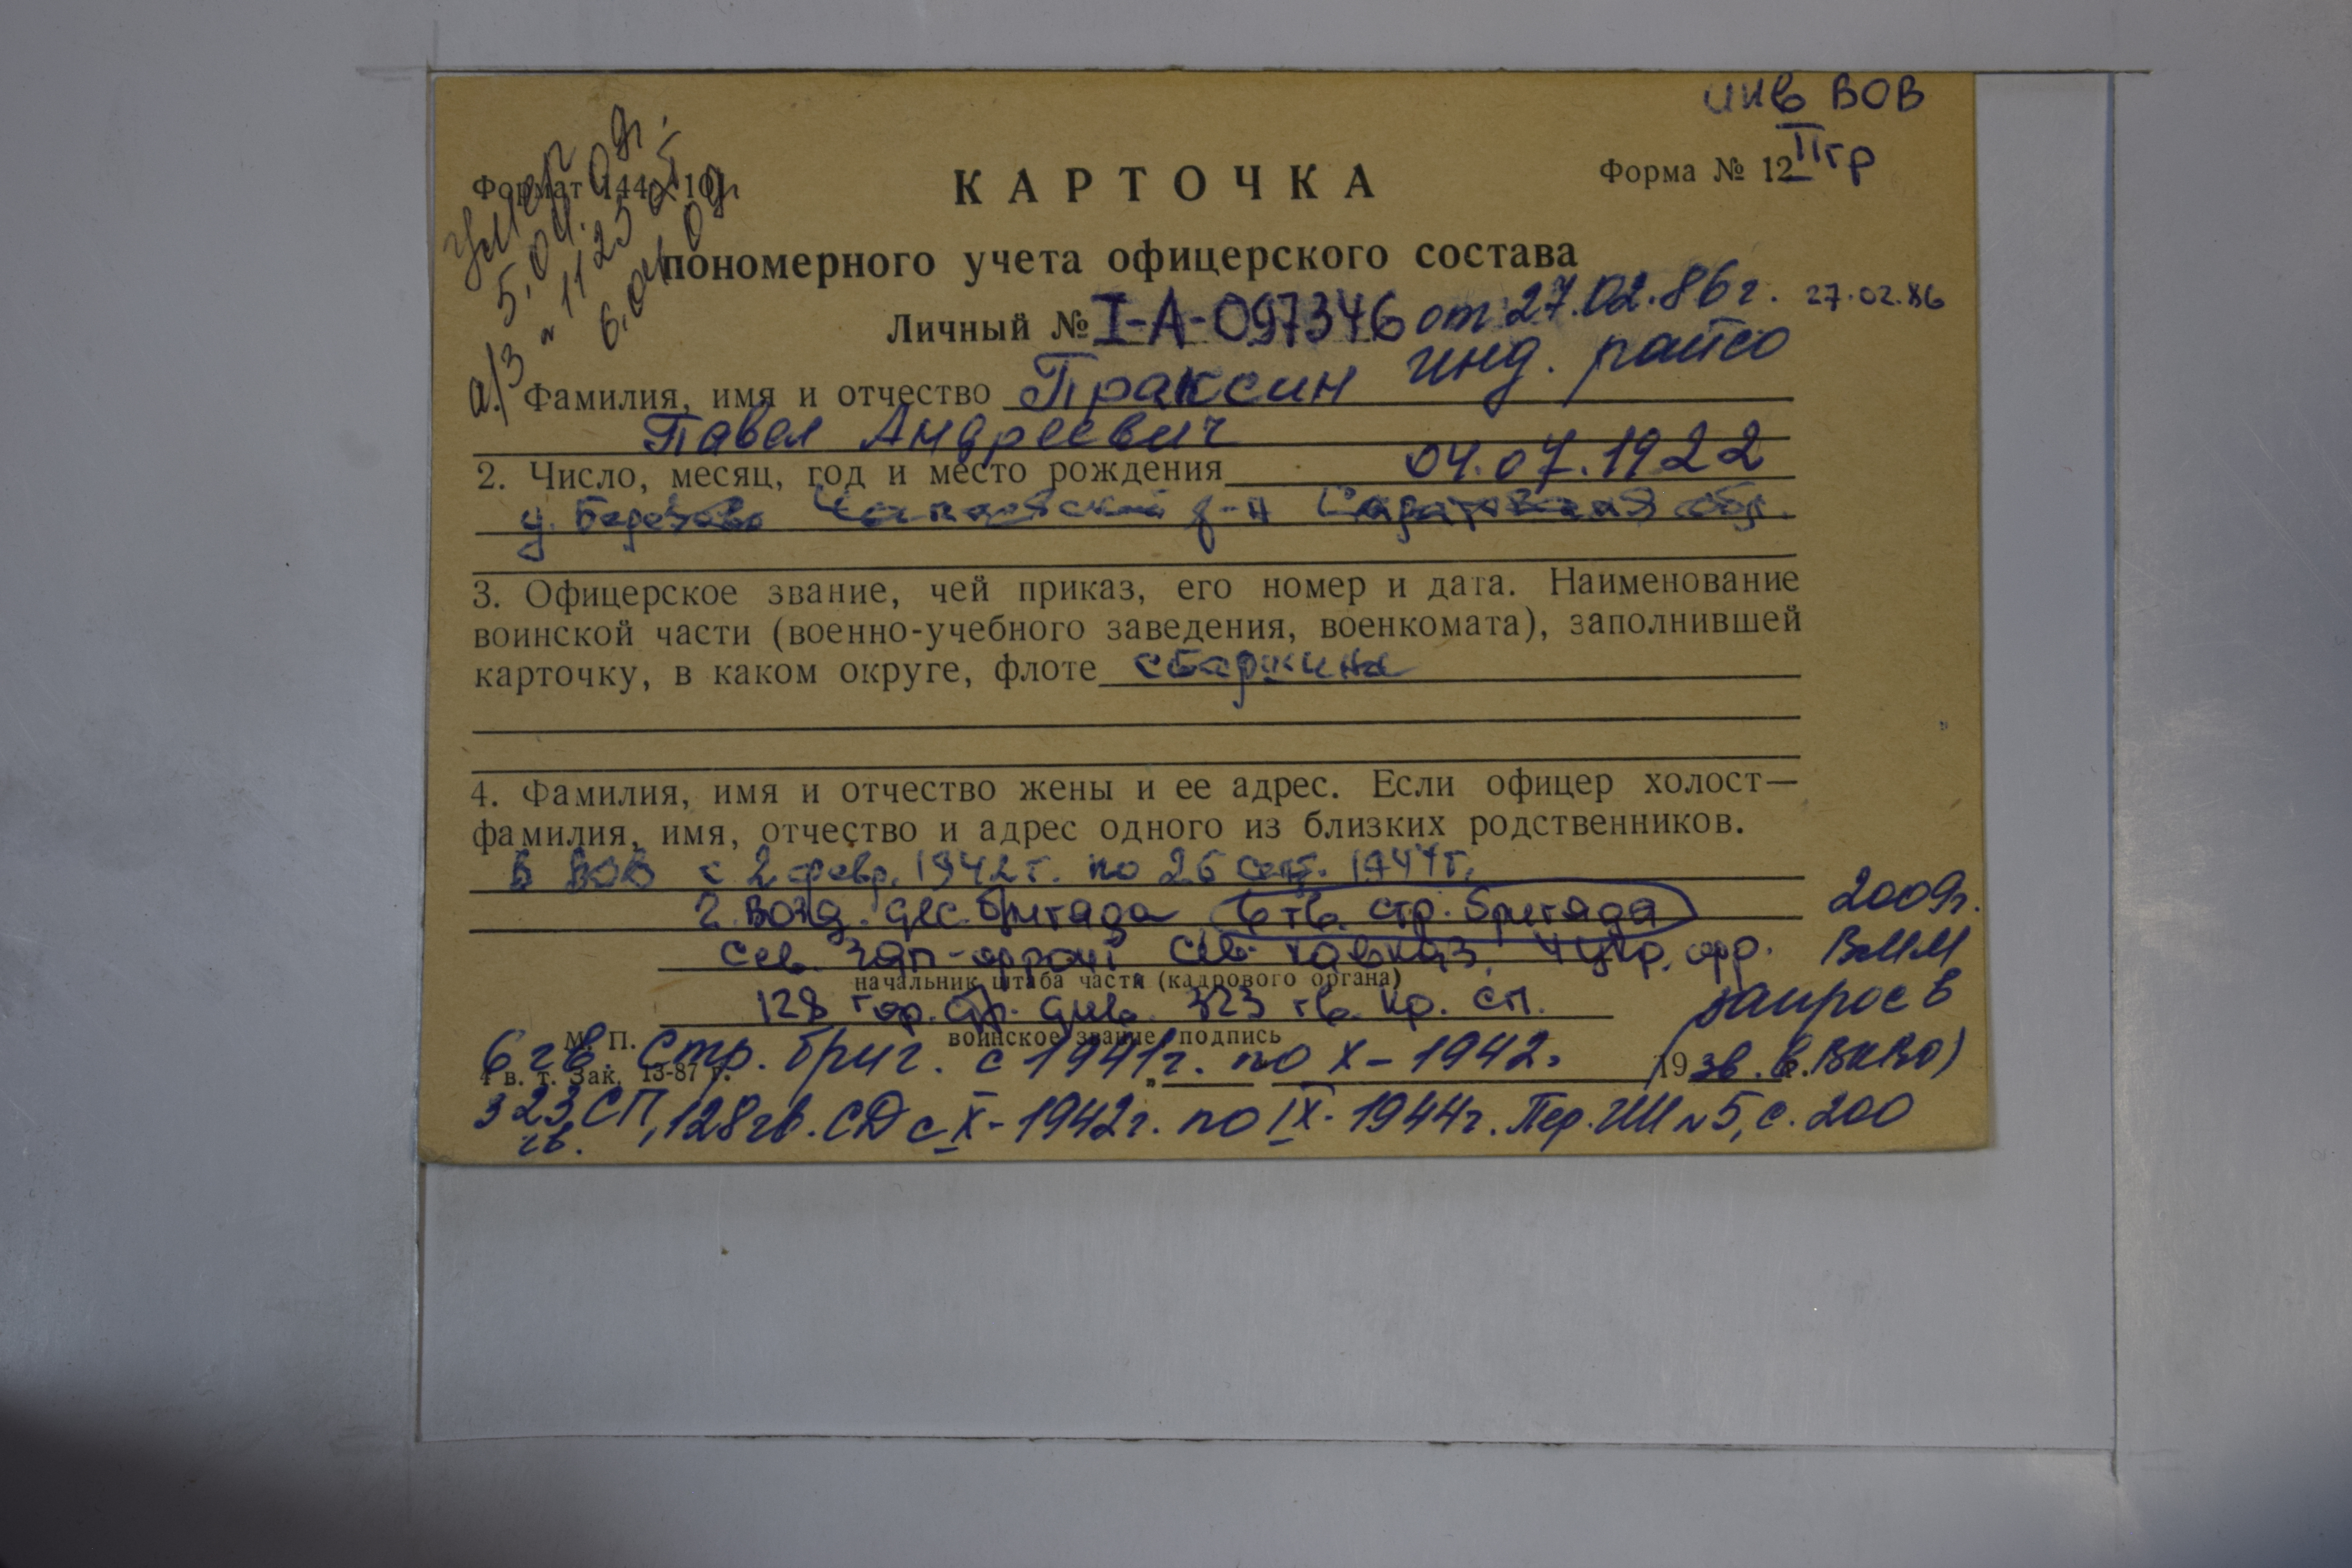 инв ВОВ
II гр
Форма № 12
Формат 144×10
Умер
5.04.09г.
а/з № 1125 от
6.04.09г
КАРТОЧКА
пономерного учета офицерского состава
Личный № I-А-097346 от 27.02.86г. 27.02.86
инд. райсо
Фамилия, имя и отчество Праксин
Павел Андреевич
2. Число, месяц, год и место рождения 04.07.1922
Саратовская обл.
3. Офицерское звание, чей приказ, его номер и дата. Наименование
воинской части (военно-учебного заведения, военкомата), заполнившей
карточку, в каком округе, флоте старшина
4. Фамилия, имя и отчество жены и ее адрес. Если офицер холост—
фамилия, имя, отчество и адрес одного из близких родственников.
В ВОВ с 2 февр. 1942г. по 26 сент. 1944г.
2 возд. дес. бригада 6 гв. стр. бригада
Сев. Зап-фронт Сев. Кавказ, 4 Укр. фр.
начальник штаба части (кадрового органа)
128 гор. стр. див. 323 гв. кр. сп.
воинское звание, подпись
М. П.
2009г.
ВММ
запрос в
6 гв. Стр. бриг. с 1941г. по X-1942г.
4 в. т. Зак. 13-87 г.
19
323 гв. СП, 128 гв. СД с X-1942г. по IX-1944г. Пер. ГШ №5, с. 200